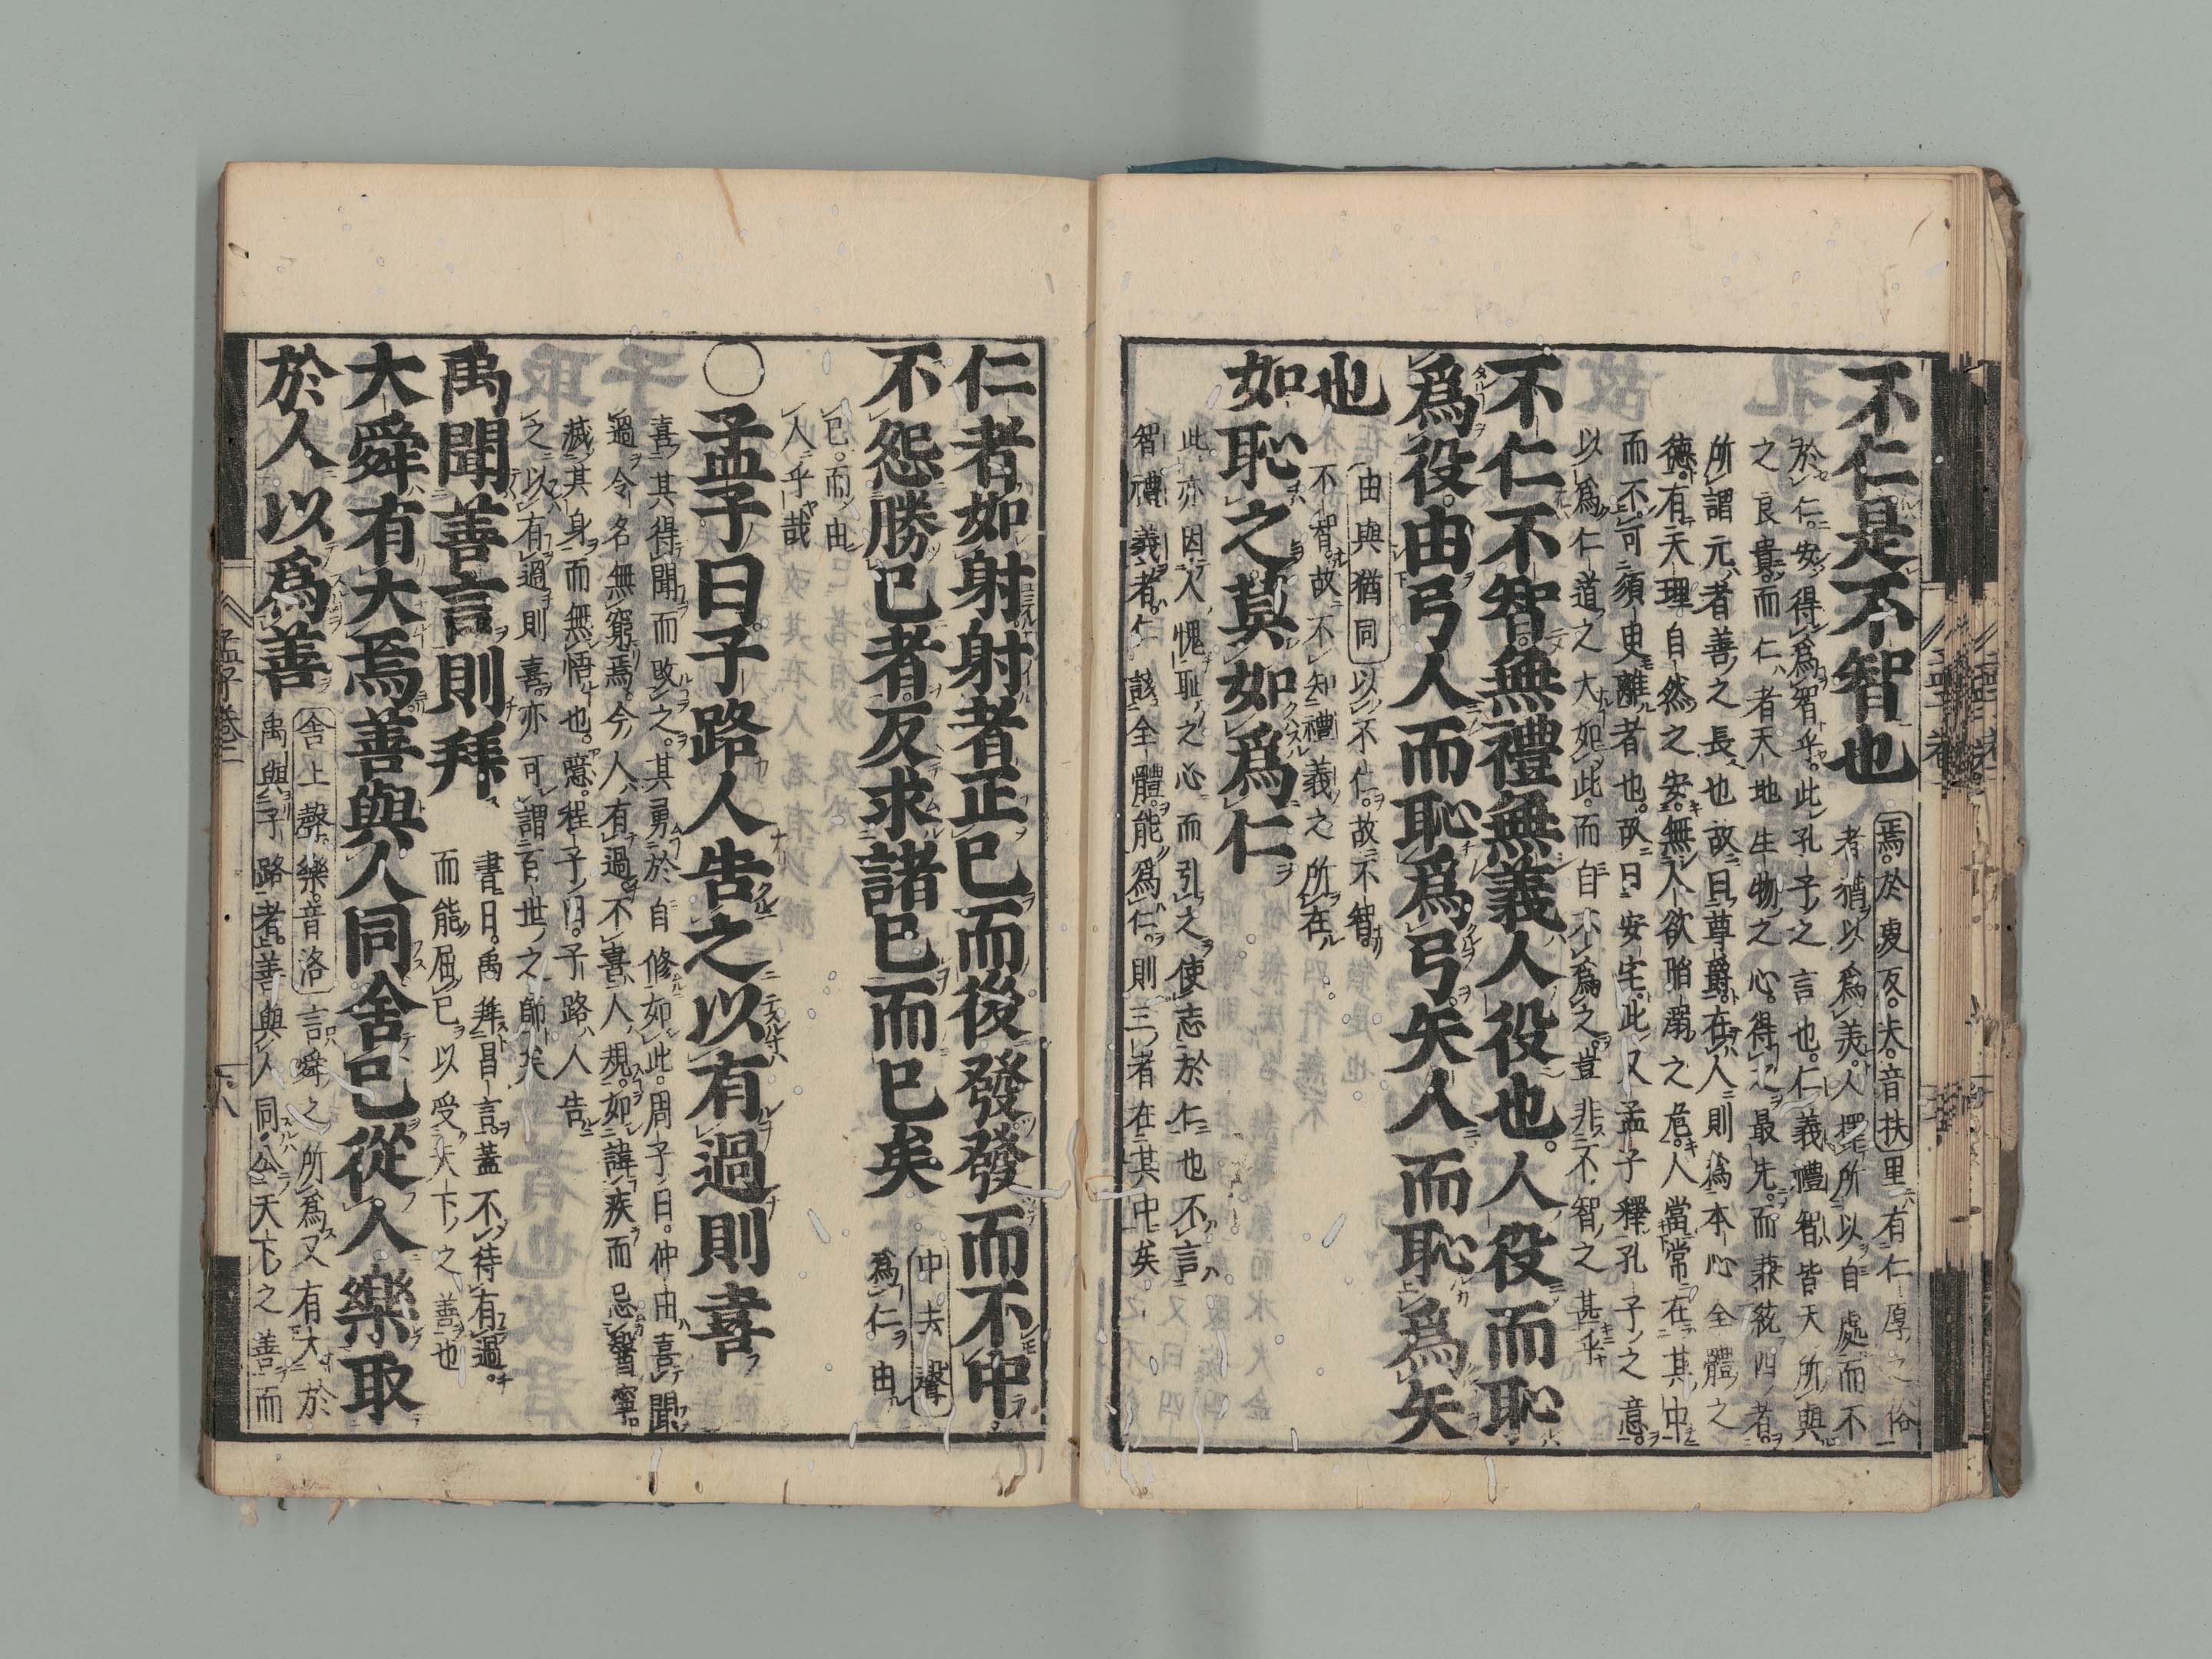 不仁是不智也
焉。於虔反。夫。音扶
里有仁厚之俗
者猶以爲美。人擇所以自處而不
於仁。安得爲智乎。此孔子之言也。仁義禮智。皆天所與
之良貴。而仁者天地生物之心。得之最先。而兼統四者。
所謂元者善之長也。故曰尊爵。在人則爲本心全體之
德。有天理自然之安。無人欲陷溺之危。人當常在其中
而不可須臾離者也。故曰安宅。此又孟子釋孔子之意。
以爲仁道之大如此。而自不爲之。豈非不智之甚乎
不仁不智。無禮無義人役也。人役而恥
爲役。由弓人而恥爲弓。矢人而恥爲矢
也
由與猶同
以不仁。故不智。
不智。故不知禮義之所在
如恥之莫如爲仁
此亦因人愧恥之心而引之使志於仁也不言
智禮義者。仁該全體。能爲仁。則三者在其中矣。
仁者如射射者正己而後發發而不中。
不怨勝己者。反求諸己而已矣
中去聲
爲仁由
己。而由
人乎哉
○孟子曰。子路人告之以有過則喜
喜其得聞而改之。其勇於自修如此。周子曰。仲由喜聞
過令名無窮焉。今人有過。不喜人規。如諱疾而忌醫寧。
滅其身而無悟也。噫。程子曰。子路人告
之以有過則喜。亦可謂百世之師矣
禹聞善言則拜
書曰。禹拜昌言。蓋不待有過。
而能屈己以受天下之善也
大舜有大焉善與人同舍己從人樂取
於人以爲善
舍上聲樂。音洛
言舜之所爲又有大於
禹與子路者。善與人同公天下之善而
孟子卷二
八